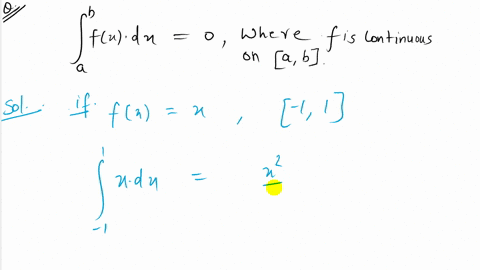 Q.
∫_a^b f(x)·dx = 0, where f is continuous
on [a, b].
Sol. if f(x) = x , [-1, 1]
∫_{-1}^1 x·dx = x²